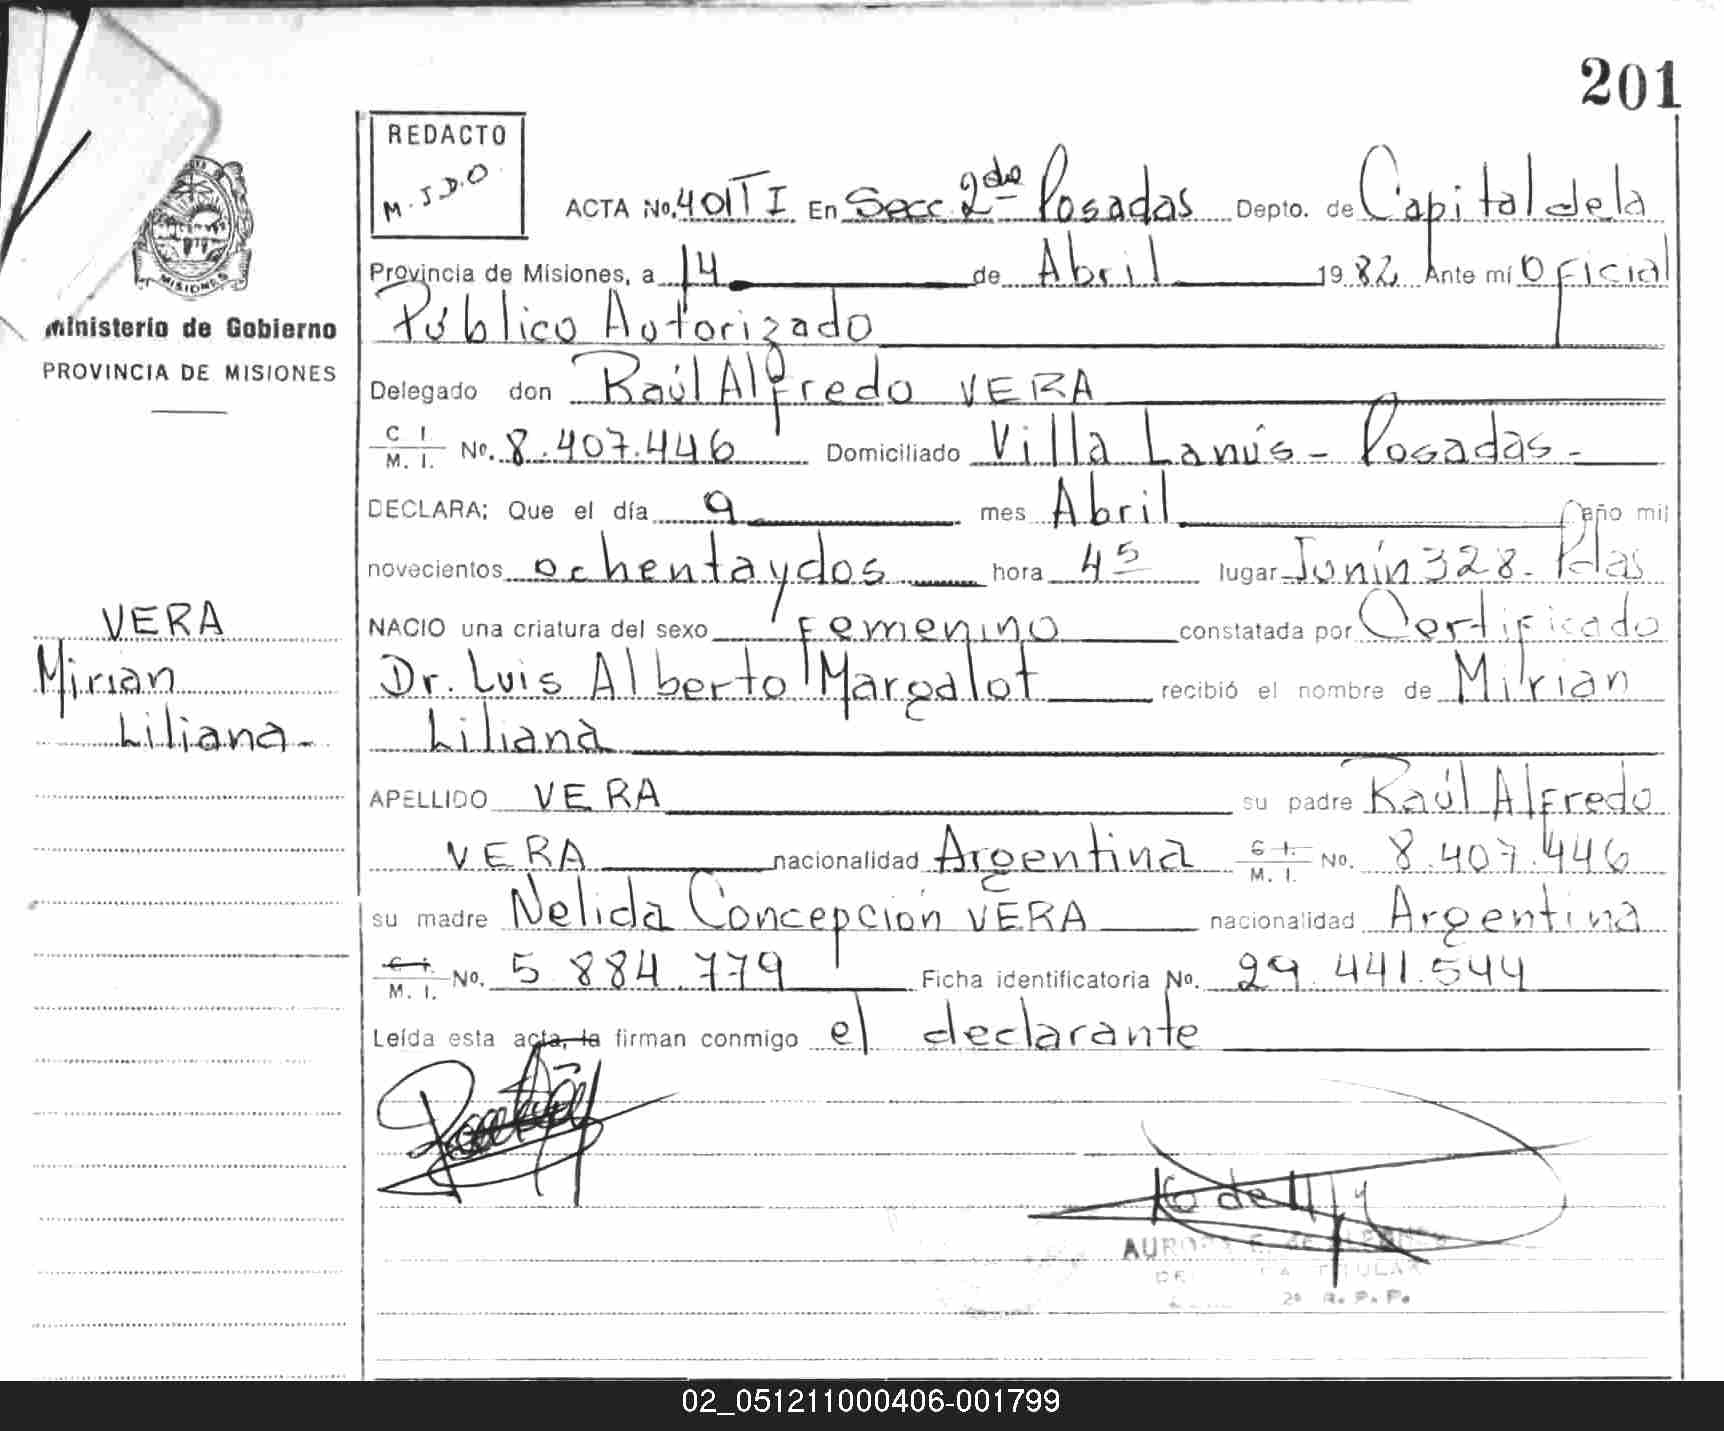 201
REDACTO
M.J.D.O.
ACTA No. 401 T I En Secc. 2da Posadas Depto. de Capital de la
Provincia de Misiones, a 14 de Abril 1982 Ante mí Oficial
Público Autorizado
Delegado don Raúl Alfredo VERA
C. I. M. I. No. 8.407.446 Domiciliado Villa Lanús - Posadas -
DECLARA: Que el día 9 mes Abril año mil
novecientos ochenta y dos hora 4 5 lugar Junín 328. Pdas
NACIO una criatura del sexo Femenino constatada por Certificado
Dr. Luis Alberto Margalot recibió el nombre de Mirian
Liliana
APELLIDO VERA su padre Raúl Alfredo
VERA nacionalidad Argentina C. I. M. I. No. 8.407.446
su madre Nelida Concepción VERA nacionalidad Argentina
C. I. M. I. No. 5 884.779 Ficha identificatoria No. 29.441.544
Leída esta acta, la firman conmigo el declarante
Ministerio de Gobierno
PROVINCIA DE MISIONES
MISIONES
VERA
Mirian
Liliana -
2ª R. P. P.
02_051211000406-001799